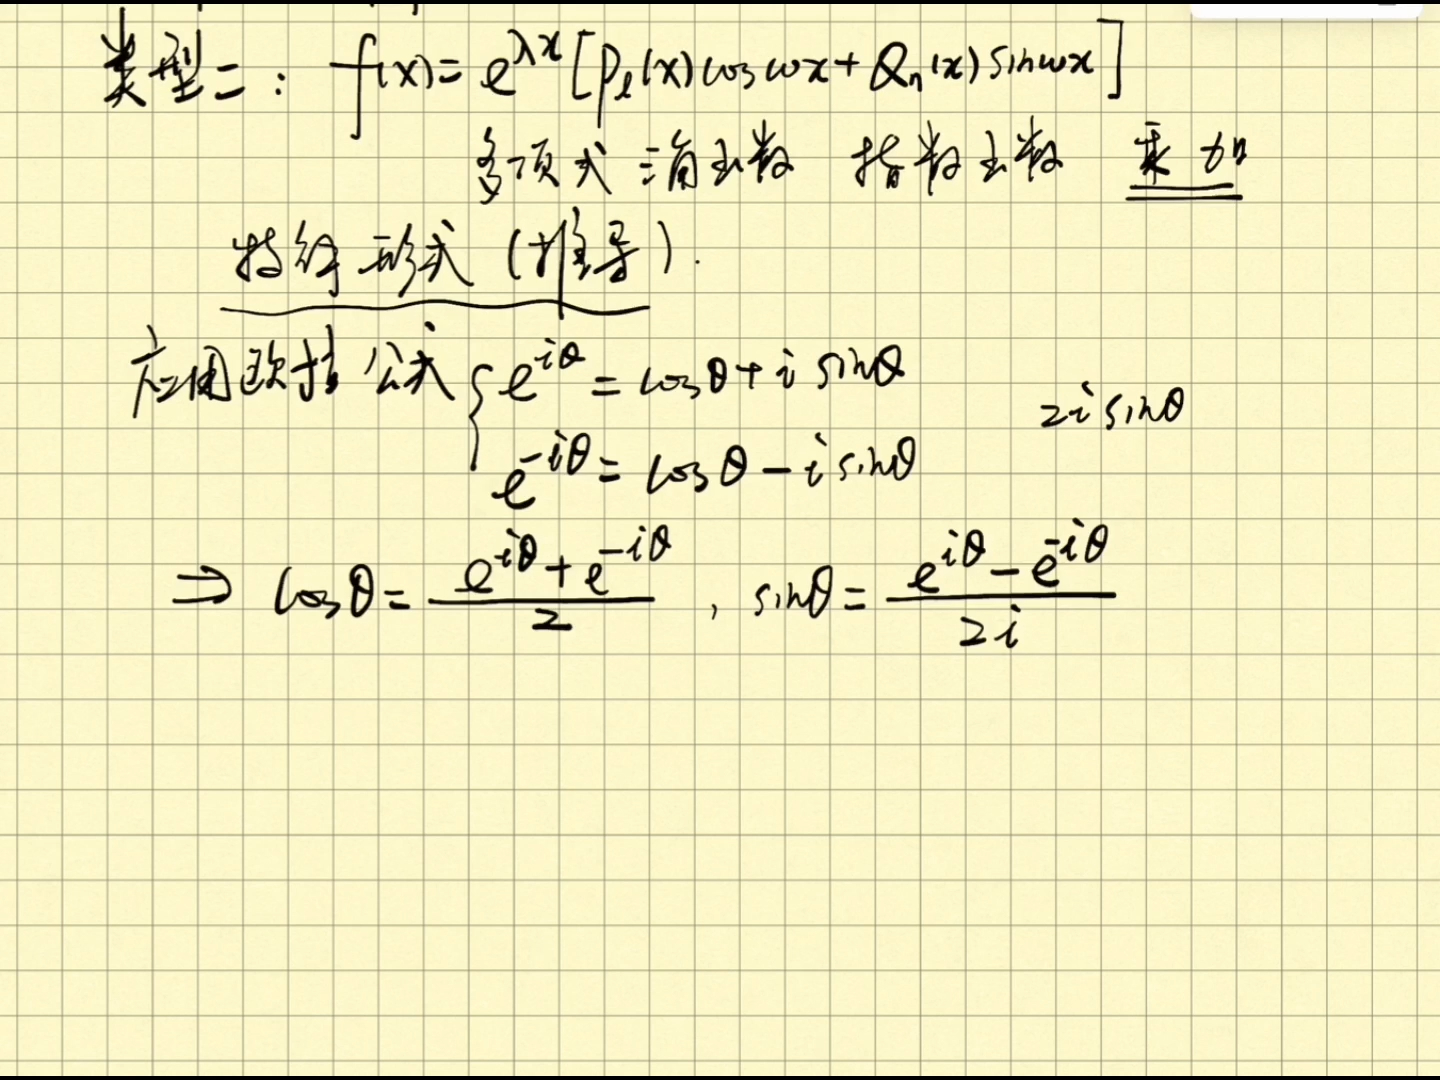 类型二: f(x)=e^{λx}[P_l(x)cosωx+Q_n(x)sinωx]
多项式 三角函数 指数函数 乘 加
特解形式(推导).
应用欧拉公式 { e^{iθ}=cosθ+i sinθ
2i sinθ
e^{-iθ}=cosθ-i sinθ
⇒ cosθ=\frac{e^{iθ}+e^{-iθ}}{2}, sinθ=\frac{e^{iθ}-e^{-iθ}}{2i}